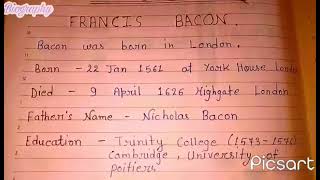 Biography
FRANCIS BACON.
Bacon was born in London.
Born - 22 Jan 1561 at York House London
Died - 9 April 1626 Highgate London
Father's Name - Nicholas Bacon
Education - Trinity College (1573-1576)
Cambridge, University of
Poitiers
Picsart